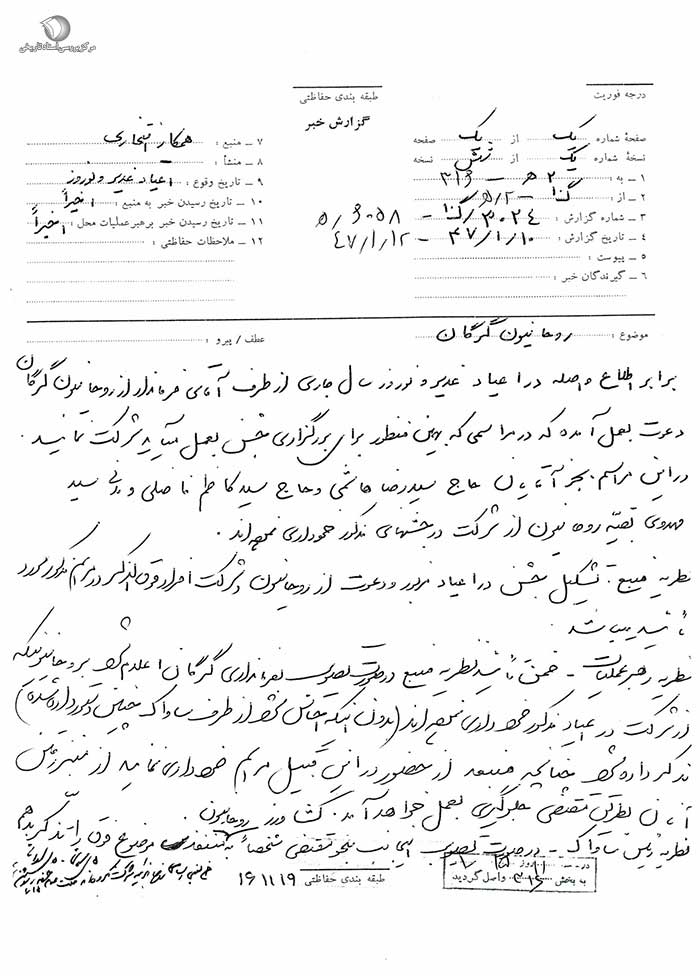 مرکز بررسی اسناد تاریخی
درجه فوریت
طبقه بندی حفاظتی
گزارش خبر
صفحهٔ شماره یک از یک صفحه
نسخهٔ شماره یک از شش نسخه
۱ – به : ۳۱۶ – ۲۰
۲ – از :
۳ – شماره گزارش :
۴ – تاریخ گزارش : ۴۷/۱/۱۰ – ۴۷/۱/۱۲
۵ – پیوست :
۶ – گیرندگان خبر :
۷ – منبع : همکار افتخاری
۸ – منشأ :
۹ – تاریخ وقوع : اعیاد غدیر و نوروز
۱۰ – تاریخ رسیدن خبر به منبع : اخیراً
۱۱ – تاریخ رسیدن خبر برهبر عملیات محل : اخیراً
۱۲ – ملاحظات حفاظتی :
موضوع : روحانیون گرگان
عطف / پیرو :
برابر اطلاع واصله در اعیاد غدیر و نوروز سال جاری از طرف آقای فرماندار از روحانیون گرگان
دعوت بعمل آمده که در مراسمی که بهمین منظور برای برگزاری جشن بعمل میآید شرکت نمایند .
در این مراسم بجز آقایان حاج سیدرضا هاشمی و حاج سید کاظم فاضلی و سید
مهدوی بقیه روحانیون از شرکت در جشنهای مذکور خودداری نموده اند .
نظریه منبع : تشکیل جشن در اعیاد مزبور و دعوت از روحانیون و شرکت افراد فوق الذکر در مراسم مذکور مورد
تأئید میباشد .
نظریه رهبر عملیات – ضمن تأئید نظریه منبع در صورت تصویب بفرمانداری گرگان اعلام شود بروحانیونیکه
از شرکت در اعیاد مذکور خودداری نموده اند (بدون اینکه احساس شود از طرف ساواک چنین دستور داده شده)
تذکر داده شود چنانچه منبعد از حضور در این قبیل مراسم خودداری نمایند از منبر رفتن
آنان بطریق مقتضی جلوگیری بعمل خواهد آمد . کشاورز
نظریه رئیس ساواک – در صورت تصویب اینجانب بنحو مقتضی شخصاً به روحانیون موضوع فوق را تذکر بدهم
طبقه بندی حفاظتی
۱۶/۱۱/۱۹
در روز
به بخش ۳۱۶ واصل گردید